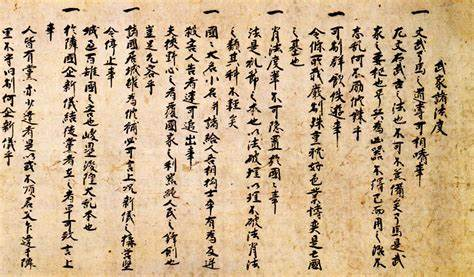 武家諸法度
一 文武弓馬之道専可相嗜事
左文右武古之法也不可不兼備矣弓馬是武
家之要枢也号兵為凶器不得已而用之治不
忘乱何不励修錬乎
一 可制群飲佚遊事
令條所載厳制殊重耽好色業博奕是亡国
之基也
一 背法度輩不可隠置於国々事
法是礼節之本也以法破理以理不破法背法
之類其科不軽矣
一 国々大名小名并諸給人各相拘士卒有為反逆
殺害人告者速可追出事
夫挟野心之者為覆国家之利器絶人民之鋒剣也
豈足允容乎
一 諸国居城雖為修補必可言上況新儀之構営堅
令停止事
城過百雉国之害也峻塁浚隍大乱之本也
一 於隣国企新儀結徒党者有之者早可致言上
事
人皆有党亦少達者是以或不順君父乍違于隣
里不守旧制何企新儀乎